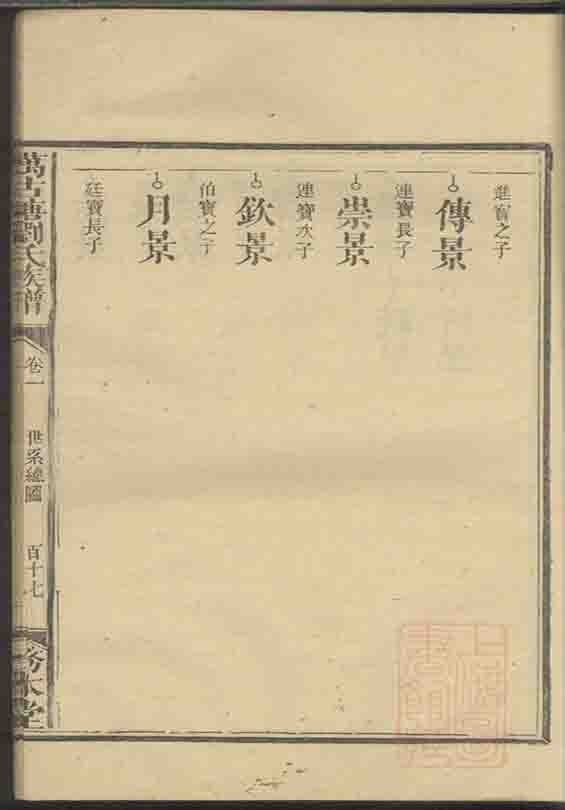 進寶之子
傳景
連寶長子
崇景
連寶次子
欽景
伯寶之子
月景
廷寶長子
萬古塘劉氏族譜
卷一
世系總圖
百十七
務本堂